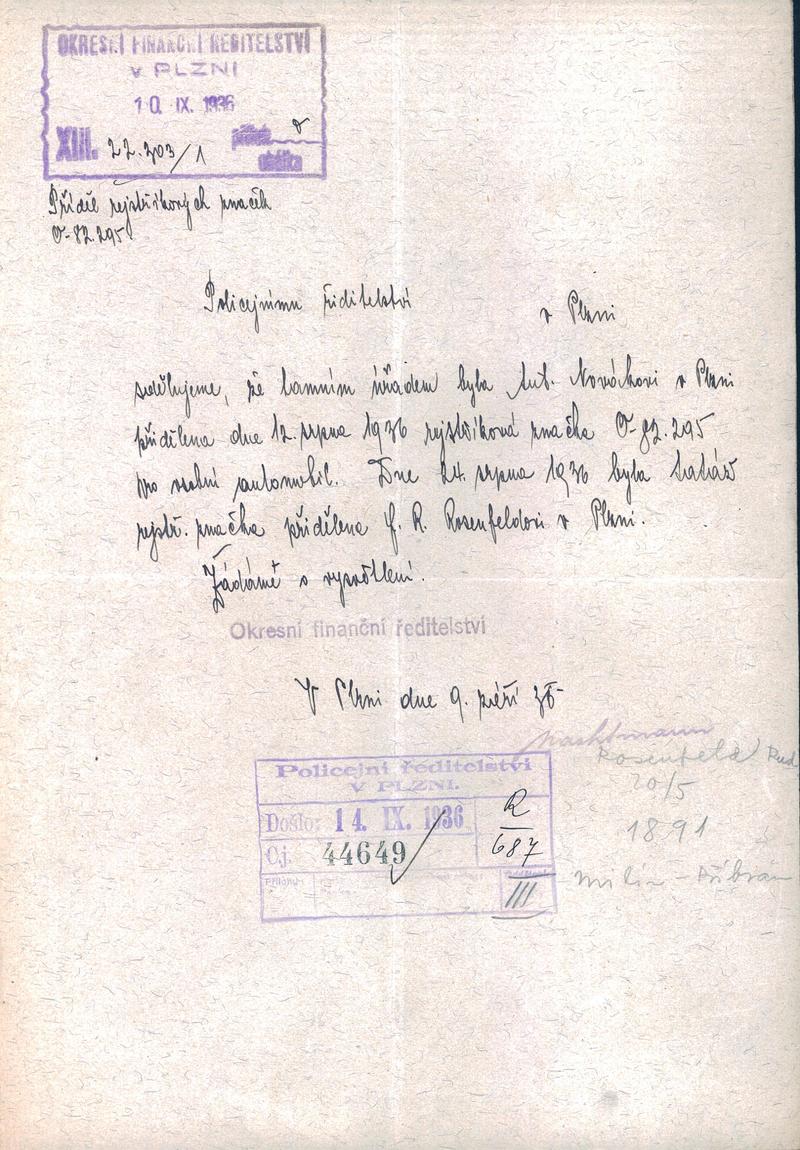 OKRESNÍ FINANČNÍ ŘEDITELSTVÍ
V PLZNI
10. IX. 1936
XIII. 22.203/1
příloh
obálka
Příděl rejstříkových značek
O-82.295
Policejnímu ředitelství v Plzni
sdělujeme, že tamním úřadem byla Ant. Novákovi v Plzni
přidělena dne 12. srpna 1936 rejstříková značka O-82.295
pro osobní automobil. Dne 24. srpna 1936 byla tatáž
rejstř. značka přidělena f. R. Rosenfeldovi v Plzni.
Žádáme o vysvětlení.
Okresní finanční ředitelství
V Plzni dne 9. září 36
Rosenfeld Rud.
20/5
1891
Milín - Příbram
Policejní ředitelství
V PLZNI.
Došlo: 14. IX. 1936
Č.j. 44649
Přílohy:
R
687
III